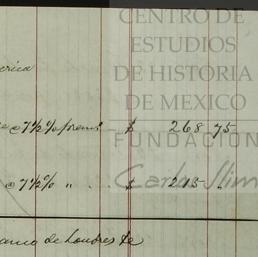 CENTRO DE
ESTUDIOS
DE HISTORIA
DE MEXICO
FUNDACIÓN
Carlos Slim
erica
@ 7½% prem. $ 268 75
@ 7½% " $ 215
anco de Londres &c